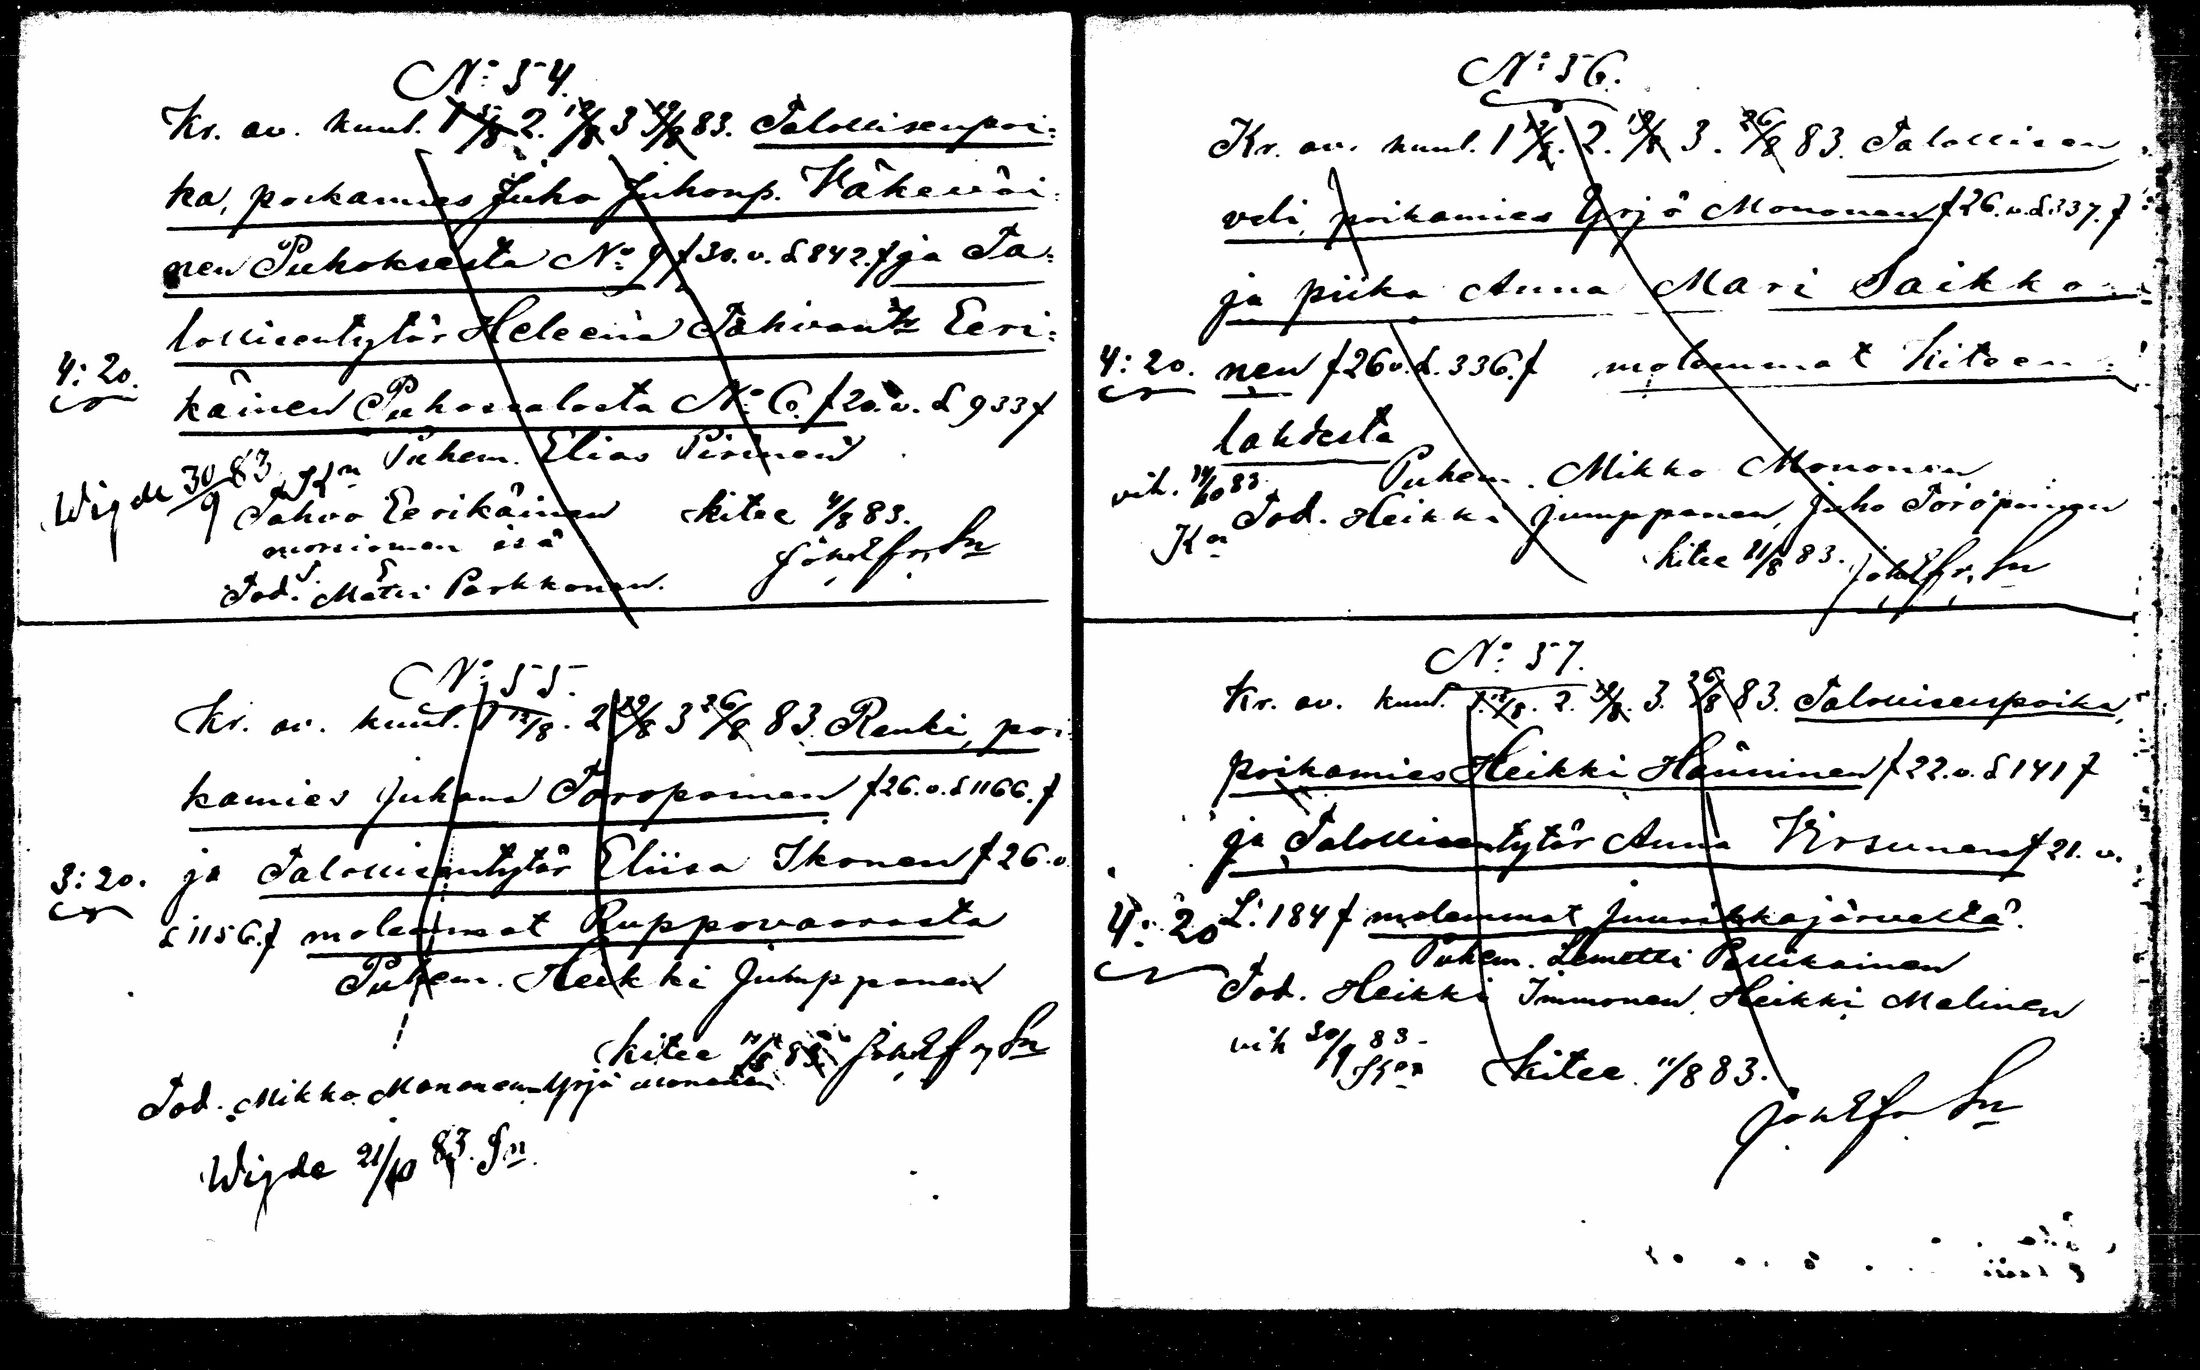 No: 54.
Kr. av. kuul. 1 5/8 2. 12/8 3 19/8 83. Talollisenpoi:
ka, poikamies Juho Juhonp. Väkeväi:
nen Puhoksesta No: 9 f 30. v. S 842. f ja Ta:
lollisentytär Heleena Tahvantr Eeri:
4: 20.
käinen Puhossalosta No: 6. f 20. v. S 933 f
Puhem. Elias Pirinen
Wigde 30/9 83. Kn
Tahvo Eerikäinen Kitee 4/8 83.
morsiamen isä
Tod. Matti Parkkonen.
No: 55.
Kr. av. kuul. 1 12/8. 2 19/8 3 26/8 83. Renki, poi:
kamies Juhana Toropainen f 26. v. S 1166. f
3: 20. ja Talollisentytär Eliisa Ikonen f 26. v.
S 1156. f molemmat Ruppovaarasta
Puhem. Heikki Jumppanen
Kitee 83.
Tod. Mikko Mononen Yrjö Mononen
Wigde 21/10 83. Sn.
No: 56.
Kr. av. kuul. 1 12/8. 2. 19/8 3. 26/8 83. Talollisen
veli, poikamies Yrjö Mononen f 26. v. S. 337. f
ja piika Anna Mari Saikko:
4: 20. nen f 26 v. S. 336. f molemmat Kiteen:
lahdesta
Puhem. Mikko Mononen
vih. 83.
Tod. Heikki Jumppanen, Juho Toropainen
Kn
Kitee 11/8 83.
No: 57.
Kr. av. kuul. 1. 12/8. 2. 19/8. 3. 26/8 83. Talollisenpoika,
poikamies Heikki Hänninen f 22. v. S 141 f
ja Talollisentytär Anna Virsunen f 21. v.
4: 20 S. 184 f molemmat Juurikkajärveltä.
Puhem. Lemetti Pallikainen
Tod. Heikki Immonen, Heikki Malinen
vih 30/9 83.
Kitee. 11/8 83.